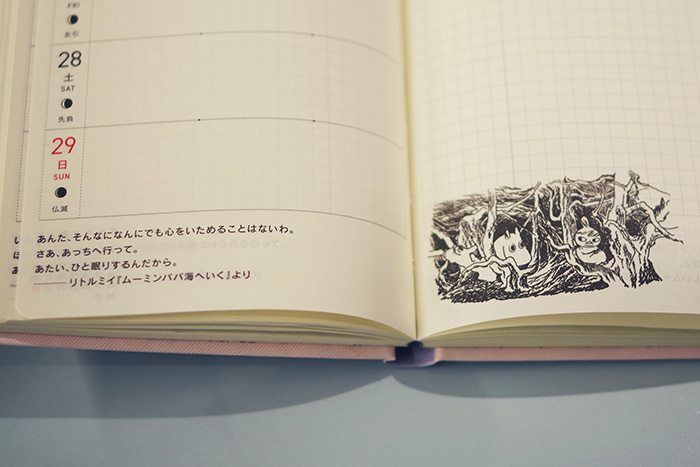 FRI
友引
28
土
SAT
先負
29
日
SUN
仏滅
あんた、そんなになんにでも心をいためることはないわ。
さあ、あっちへ行って。
あたい、ひと眠りするんだから。
———リトルミイ『ムーミンパパ海へいく』より